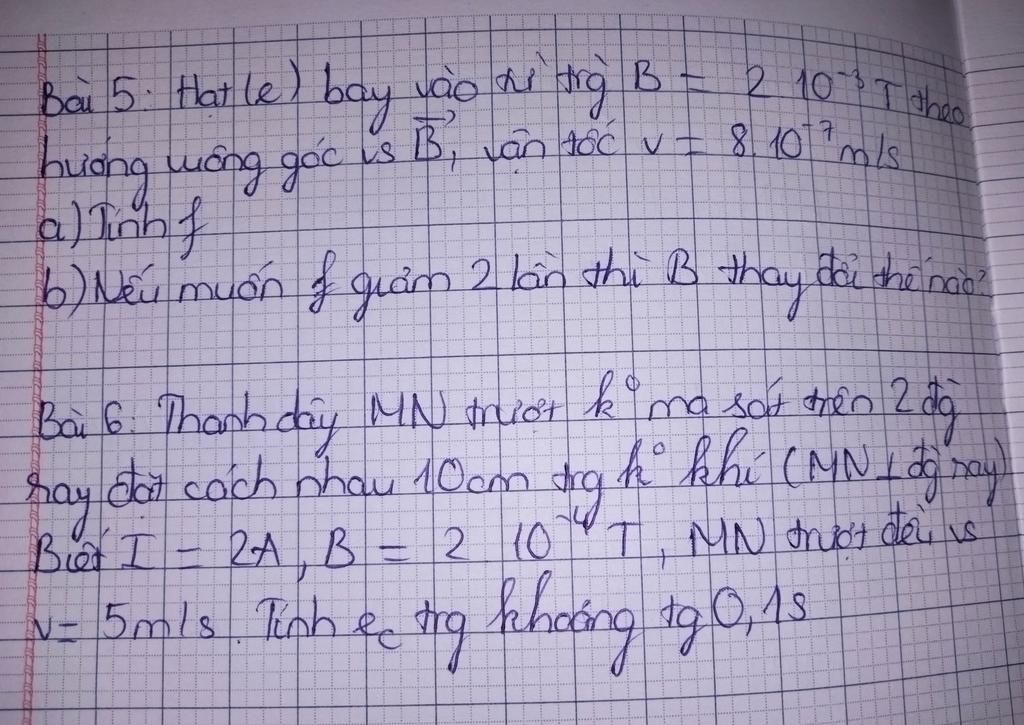 Bài 5: Hạt (e) bay vào từ trg B = 2 10⁻³ T theo
hướng vuông góc vs B⃗, vận tốc v = 8.10⁻⁷ m/s
a) Tính f
b) Nếu muốn f giảm 2 lần thì B thay đổi thế nào?
Bài 6: Thanh dây MN trượt k° ma sát trên 2 đg
ray đặt cách nhau 10cm trg k° khí (MN ⊥ đg ray)
Biết I = 2A, B = 2 10⁻⁴ T, MN trượt đều vs
v = 5m/s. Tính e꜀ trg khoảng tg 0,1s